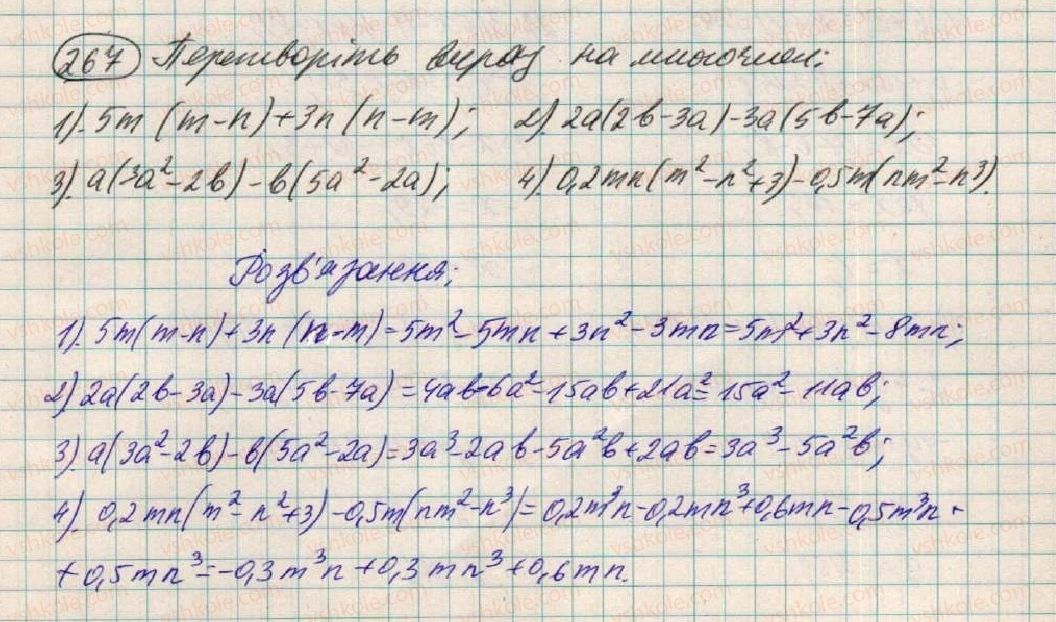 267 Перетворіть вираз на многочлен:
1). 5m (m-n)+3n (n-m); 2) 2a(2b-3a)-3a(5b-7a);
3). a(3a²-2b)-b(5a²-2a); 4) 0,2mn(m²-n²+3)-0,5m(nm²-n³).
Розв'язання:
1). 5m(m-n)+3n(n-m)=5m²-5mn+3n²-3mn=5m²+3n²-8mn;
2) 2a(2b-3a)-3a(5b-7a)=4ab-6a²-15ab+21a²=15a²-11ab;
3). a(3a²-2b)-b(5a²-2a)=3a³-2ab-5a²b+2ab=3a³-5a²b;
4). 0,2mn(m²-n²+3)-0,5m(nm²-n³)=0,2m³n-0,2mn³+0,6mn-0,5m³n+
+0,5mn³=-0,3m³n+0,3mn³+0,6mn.